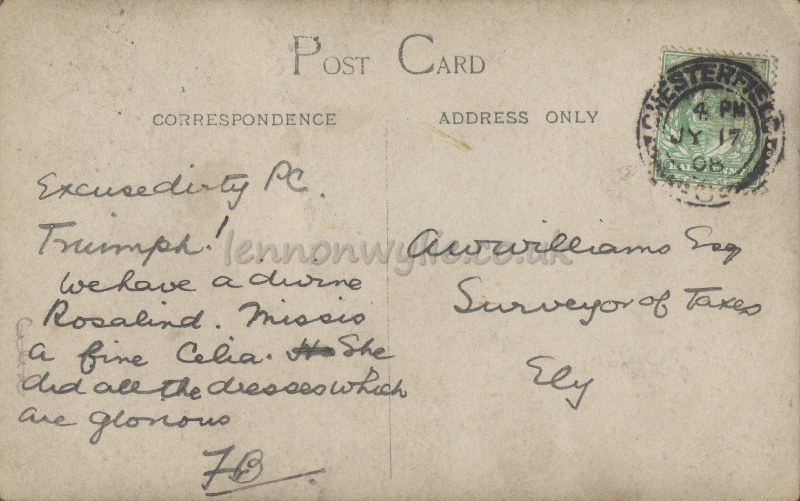 POST CARD
CORRESPONDENCE
ADDRESS ONLY
CHESTERFIELD
4 PM
JY 17
08
Excuse dirty PC.
Triumph!
We have a divine
Rosalind. Missis
a fine Celia. She
did all the dresses which
are glorious
FB
AWWilliams Esq
Surveyor of Taxes
Ely
lennonwylie.co.uk